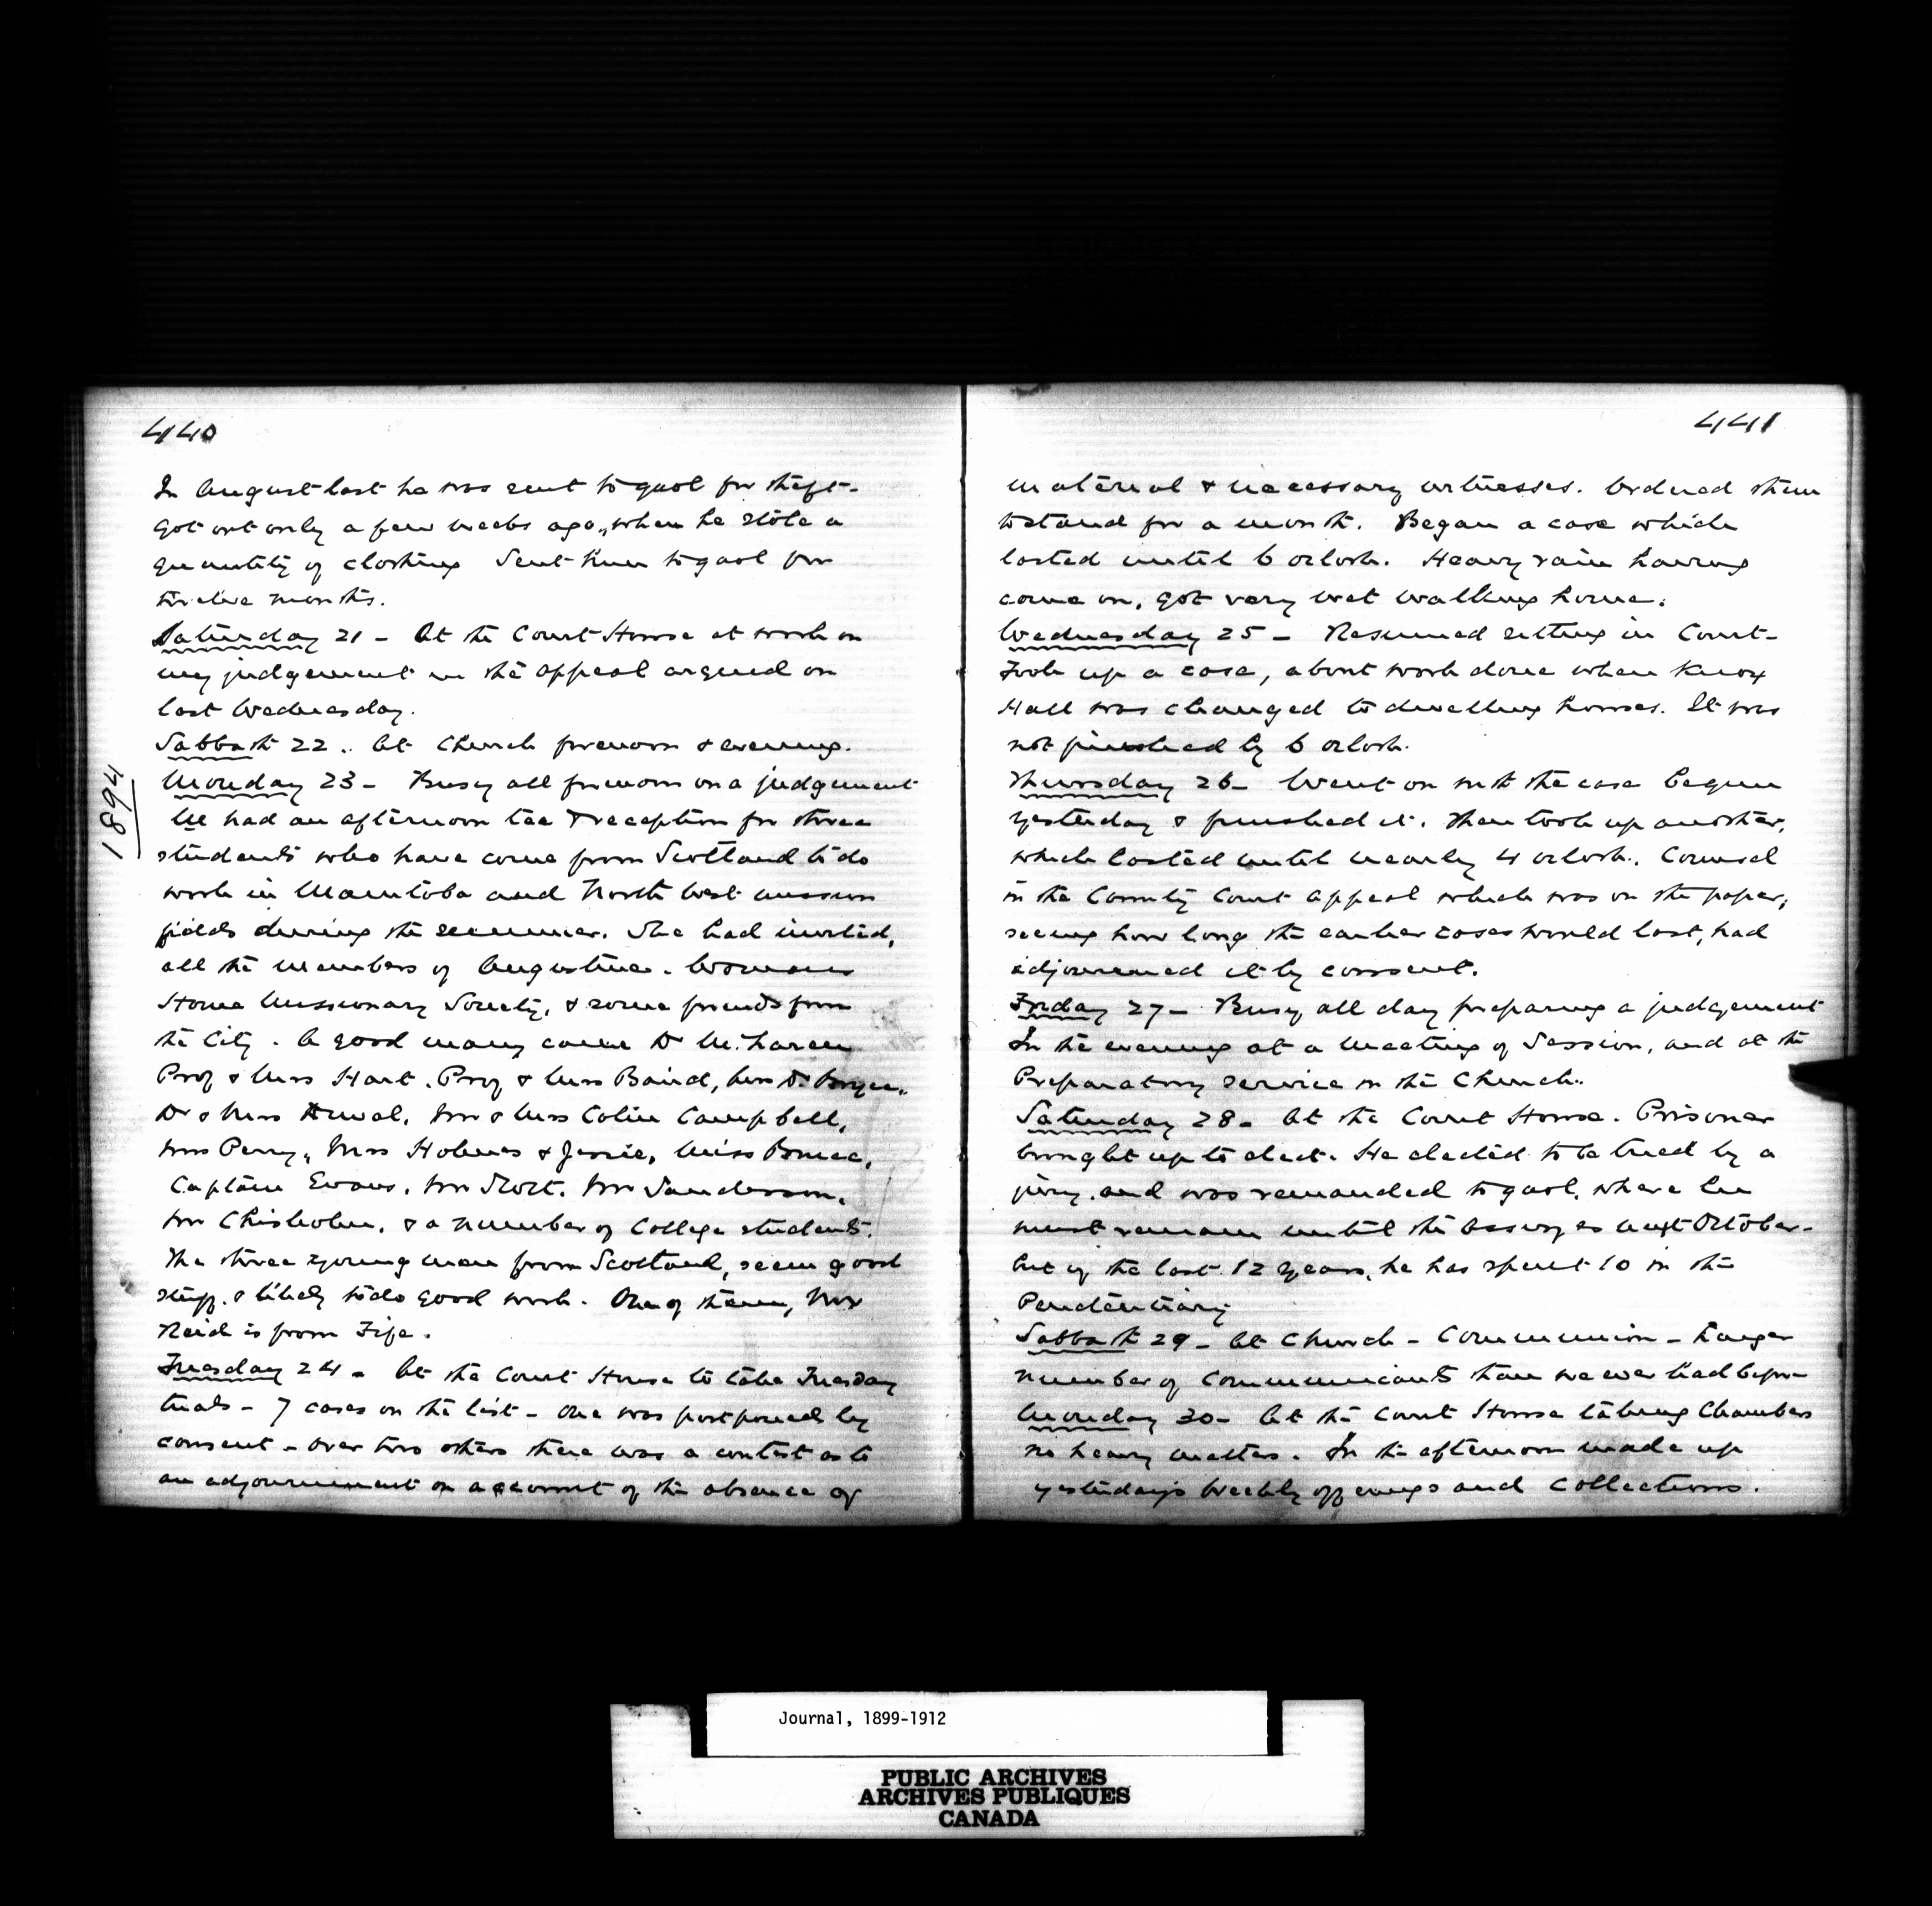 440
In August last he was sent to gaol for theft.
Got out only a few weeks ago, when he stole a
quantity of clothing Sent him to gaol for
twelve months.
Saturday 21 - At the Court House at work on
my judgement in the appeal argued on
last Wednesday.
Sabbath 22. At Church forenoon & evening.
1894
Monday 23 - Busy all forenoon on a judgement
We had an afternoon tea & reception for three
students who have come from Scotland to do
work in Manitoba and North West mission
fields during the summer. She had invited,
all the members of Augustine. Womans
Home Missionary Society, & some friends from
the City. A good many came Dr McLaren
Prof & Mrs Hart. Prof & Mrs Baird, Mrs Dr Bryce,
Dr & Mrs Duval, Mr & Mrs Colin Campbell,
Mrs Perry, Mrs Holmes & Jessie, Miss Bruce,
Captain Evans, Mr Scott. Mr Sanderson,
Mr Chisholm, & a number of College students.
The three young men from Scotland, seem good
stuff. & likely to do good work. One of them, Mr
Reid is from Fife.
Tuesday 24 - At the Court House to take Tuesday
trials - 7 cases on the list - One was postponed by
consent - Over two others there was a contest as to
an adjournment on account of the absence of
441
material & necessary witnesses. Ordered them
to stand for a month. Began a case which
lasted until 6 oclock. Heavy rain having
come on, got very wet walking home.
Wednesday 25 - Resumed sitting in Court-
Took up a case, about work done when Knox
Hall was changed to dwelling houses. It was
not finished by 6 oclock.
Thursday 26 - Went on with the case begun
yesterday & finished it. Then took up another,
which lasted until nearly 4 oclock. Counsel
in the County Court appeal which was on the paper,
seeing how long the earlier cases would last, had
adjourned it by consent.
Friday 27 - Busy all day preparing a judgement
In the evening at a meeting of Session, and at the
Preparatory service in the Church.
Saturday 28 - At the Court House. Prisoner
brought up to elect. He elected to be tried by a
jury. and was remanded to gaol, where he
must remain until the Assizes next October-
Out of the last 12 years, he has spent 10 in the
Penitentiary
Sabbath 29 - At Church - Communion - Larger
number of Communicants than we ever had before
Monday 30 - At the Court House taking Chambers
no heavy matters. In the afternoon made up
yesterday's Weekly offerings and Collections.
Journal, 1899-1912
PUBLIC ARCHIVES
ARCHIVES PUBLIQUES
CANADA